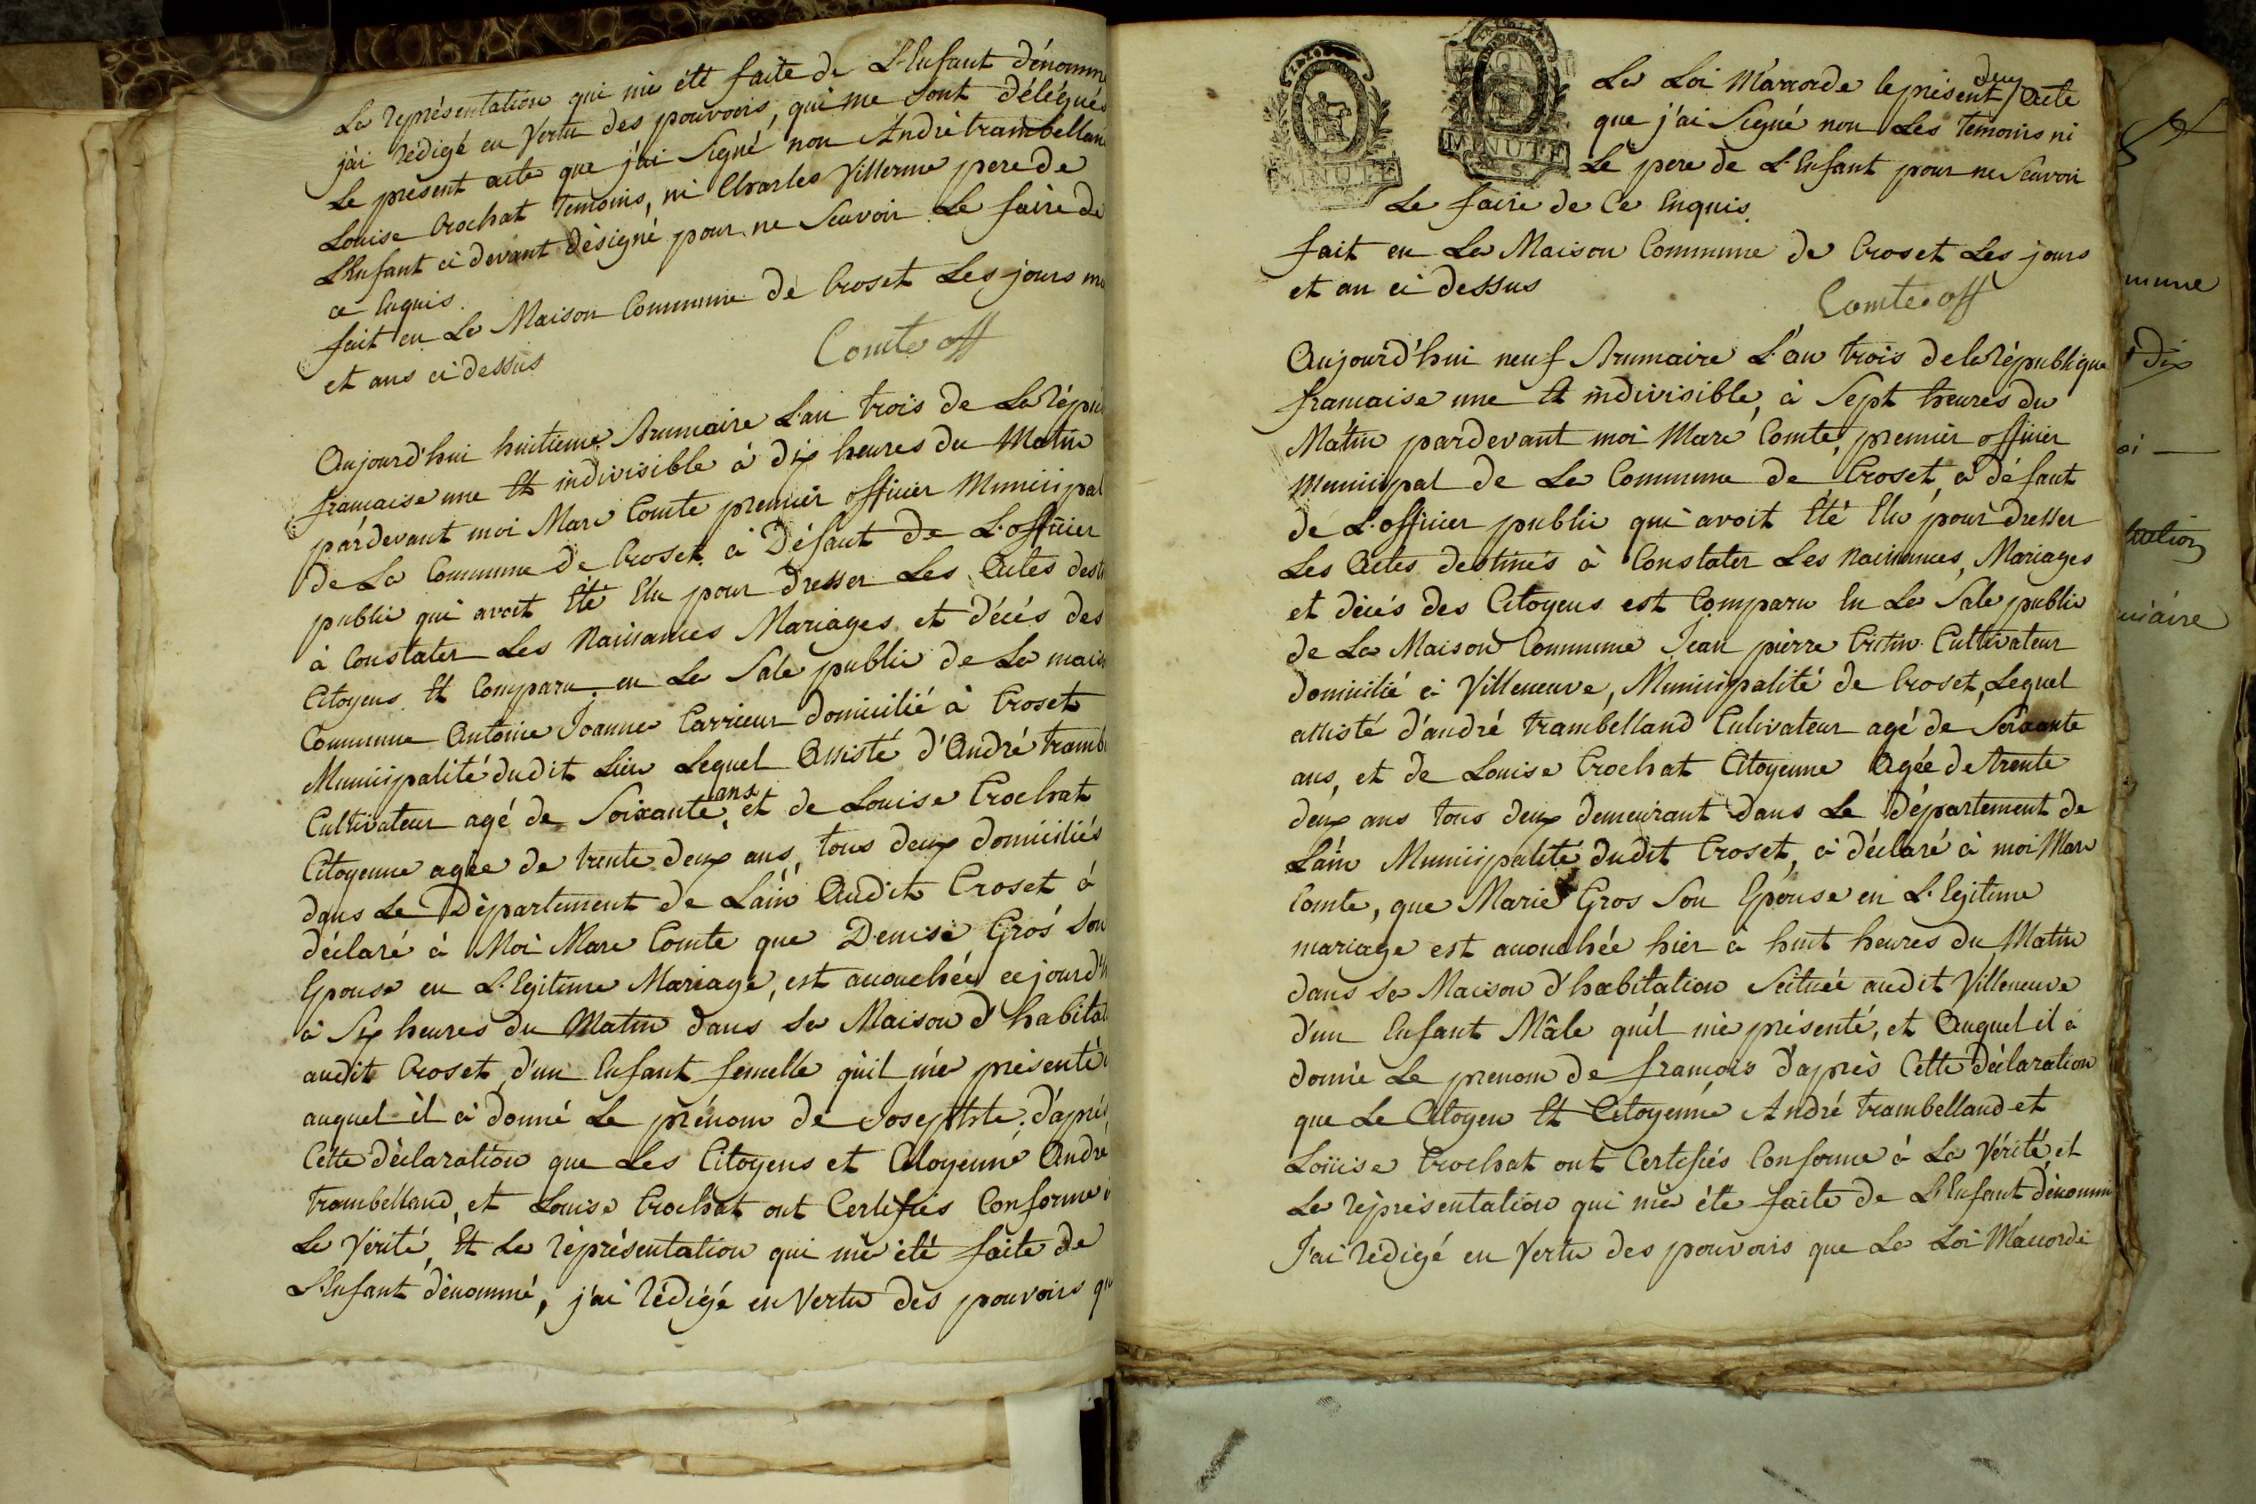 La représentation qui m'a été faite de L'Enfant dénomm
j'ai rédigé en Vertu des pouvoirs, qui me sont délégués
Le présent acte que j'ai signé non André trambelland
Louise Crochat Temoins, ni Charles Villerme pere de
L'Enfant ci devant désigné pour ne Scavoir Le faire de
ce Enquis.
fait en La Maison Commune de Croset Les jours mo
et ans ci dessus
Comte off
Aujourd'hui huitieme Brumaire L'an trois de La Répu
francaise une Et indivisible à dix heures du Matin
pardevant moi Marc Comte premier officier Municipal
de La Commune de Croset à Défaut de L'officier
public qui avoit Eté Elu pour dresser Les Actes desti
à Constater Les Naissances Mariages et décés des
Citoyens Et Comparu en La Sale public de La maiso
Commune Antoine Joanne Carrieur domicilié à Croset
Municipalité dudit Lieu Lequel Assisté d'André tramb
Cultivateur agé de Soixante ans et de Louise Crochat
Citoyenne agée de trente deux ans, tous deux domiciliés
dans Le Département de Lain Audit Croset à
déclaré à Moi Marc Comte que Denise Gros Son
Epouse en L'Egitime Mariage, est accouchée ce jourd'h
à Six heures du Matin dans Sa Maison d'habitat
audit Croset d'un Enfant femelle qu'il m'a présenté
auquel il à donné Le prénom de Josephte. d'aprés
Cette déclaration que Les Citoyens et Citoyenne André
Trambelland, et Louise Crochat ont Certifiés Conforme à
La Vérité, Et La représentation qui m'a été faite de
L'Enfant dénommé, j'ai rédigé en Vertu des pouvoirs qu
MINUTE
MINUTE
La Loi M'accorde le présent deux/ acte
que j'ai Signé non Les Temoins ni
Le pere de L'Enfant pour ne Scavoir
Le faire de Ce Enquis.
fait en La Maison Commune de Croset Les jours
et an ci dessus
Comte off
Aujourd'hui neuf Brumaire L'an trois de la République
francaise une Et indivisible, à Sept heures du
Matin pardevant moi Marc Comte, premier officier
Municipal de La Commune de Croset à défaut
de L'officier public qui avoit Eté Elu pour dresser
Les Actes destinés à Constater Les Naissances, Mariages
et décés des Citoyens est Comparu En La Sale public
de La Maison Commune Jean pierre Cultivateur
domicilié à Villeneuve, Municipalité de Croset, Lequel
assisté d'andré trambelland Cultivateur agé de Soixante
ans, et de Louise Crochat Citoyenne Agée de trente
deux ans tous deux demeurant dans Le Département de
Lain Municipalité dudit Croset, à déclaré à moi Marc
Comte, que Marie Gros Son Epouse en L'Egitime
mariage est accouchée hier à huit heures du Matin
dans Sa Maison d'habitation Scituée audit Villeneuve
d'un Enfant Mâle qu'il m'a présenté, et Auquel il à
donné Le prenom de francois d'après Cette déclaration
que Le Citoyen Et Citoyenne André trambelland et
Louise Crochat ont Certifiés Conforme à La Vérité, et
La représentation qui m'a été faite de L'Enfant dénomm
J'ai rédigé en Vertu des pouvoirs que La Loi M'accorde
mune
dix